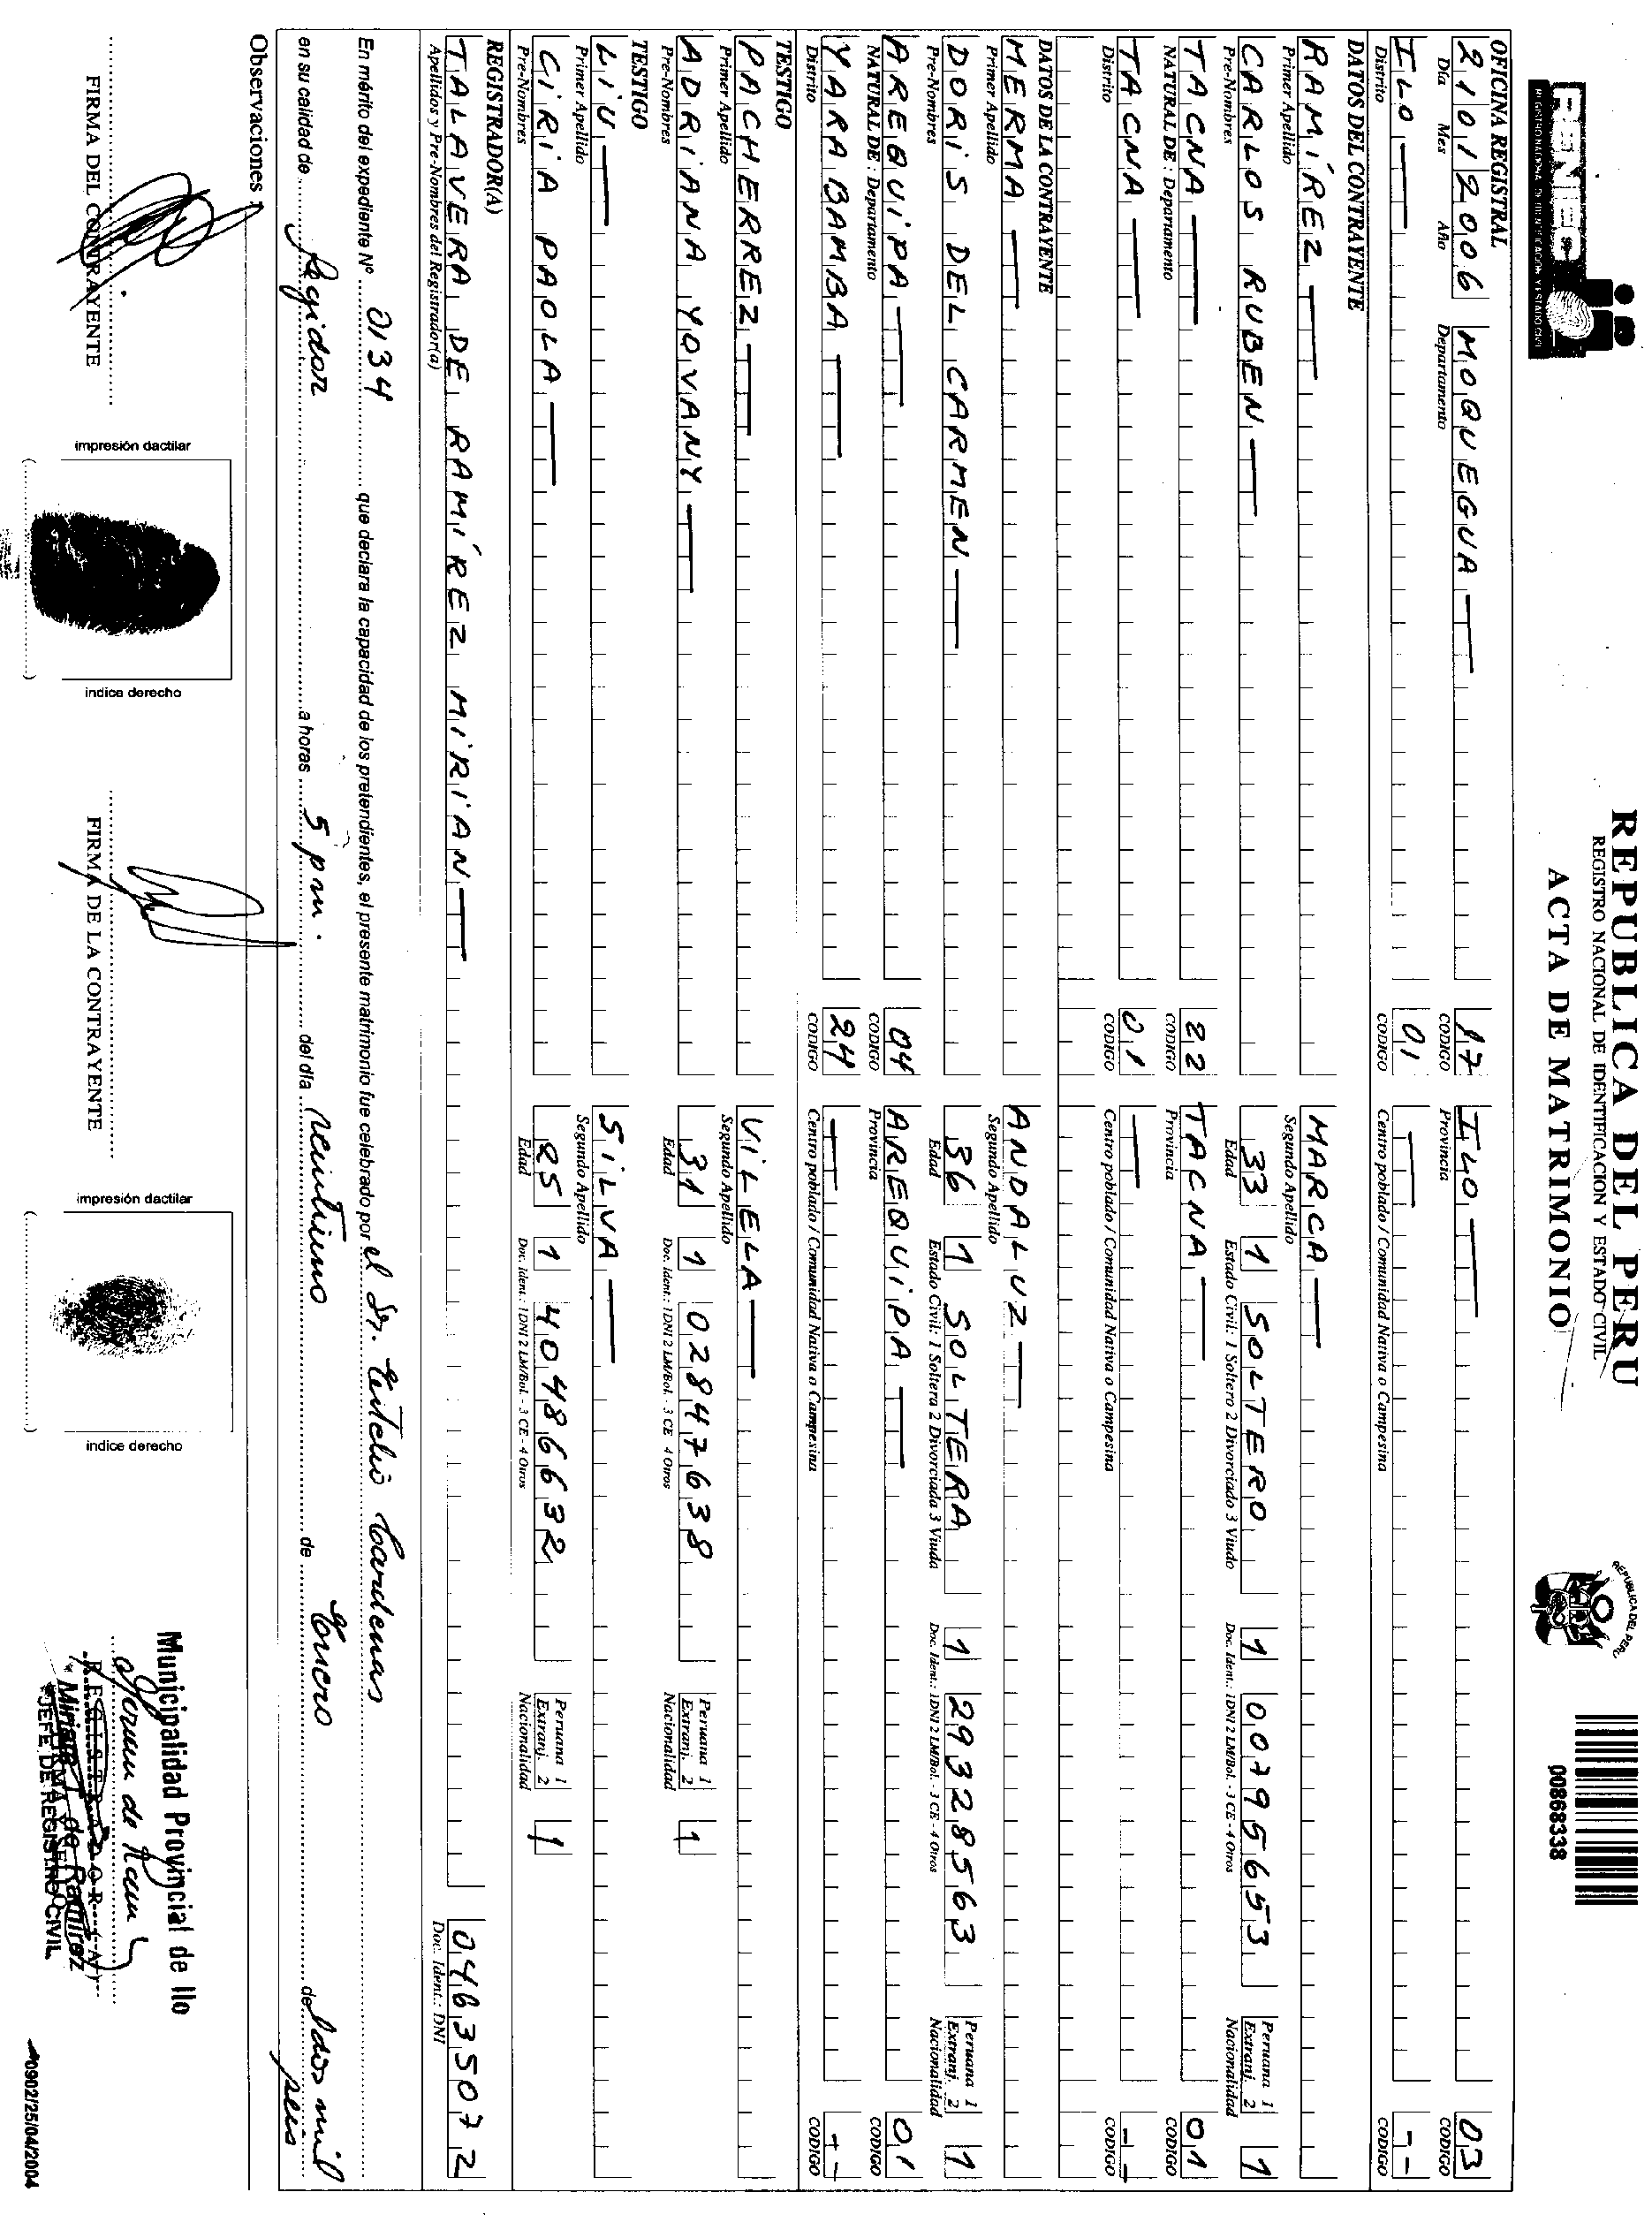 RENIEC
REGISTRO NACIONAL DE IDENTIFICACION Y ESTADO CIVIL
REPUBLICA DEL PERU
REGISTRO NACIONAL DE IDENTIFICACION Y ESTADO CIVIL
ACTA DE MATRIMONIO
REPUBLICA DEL PERU
00868338
OFICINA REGISTRAL
21012006 MOQUEGUA 17 ILO 03
Día Mes Año Departamento CODIGO Provincia CODIGO
ILO 01 — --
Distrito CODIGO Centro poblado / Comunidad Nativa o Campesina CODIGO
DATOS DEL CONTRAYENTE
RAMÍREZ MARCA
Primer Apellido Segundo Apellido
CARLOS RUBEN 33 1 SOLTERO 1 00795653 Peruana 1 Extranj. 2 1
Pre-Nombres Edad Estado Civil: 1 Soltero 2 Divorciado 3 Viudo Doc. Ident.: 1DNI 2 LM/Bol. - 3 CE - 4 Otros Nacionalidad
TACNA 22 TACNA 01
NATURAL DE : Departamento CODIGO Provincia CODIGO
TACNA 01 — --
Distrito CODIGO Centro poblado / Comunidad Nativa o Campesina CODIGO
DATOS DE LA CONTRAYENTE
MERMA ANDALUZ
Primer Apellido Segundo Apellido
DORIS DEL CARMEN 36 1 SOLTERA 1 29328563 Peruana 1 Extranj. 2 1
Pre-Nombres Edad Estado Civil: 1 Soltera 2 Divorciada 3 Viuda Doc. Ident.: 1DNI 2 LM/Bol. - 3 CE - 4 Otros Nacionalidad
AREQUIPA 04 AREQUIPA 01
NATURAL DE : Departamento CODIGO Provincia CODIGO
YARABAMBA 24 — --
Distrito CODIGO Centro poblado / Comunidad Nativa o Campesina CODIGO
TESTIGO
PACHERREZ VILELA
Primer Apellido Segundo Apellido
ADRIANA YOVANY 31 1 02847638 Peruana 1 Extranj. 2 1
Pre-Nombres Edad Doc. Ident.: 1DNI 2 LM/Bol. - 3 CE 4 Otros Nacionalidad
TESTIGO
LIU SILVA
Primer Apellido Segundo Apellido
CIRIA PAOLA 25 1 40486632 Peruana 1 Extranj. 2 1
Pre-Nombres Edad Doc. Ident.: 1DNI 2 LM/Bol. - 3 CE - 4 Otros Nacionalidad
REGISTRADOR(A)
TALAVERA DE RAMÍREZ MIRIAN 04635072
Apellidos y Pre-Nombres del Registrador(a) Doc. Ident.: DNI
En mérito del expediente Nº 0134 que declara la capacidad de los pretendientes, el presente matrimonio fue celebrado por el Sr. Cardenas
en su calidad de Regidor a horas 5 pm. del día veintiuno de Enero de dos mil seis
Observaciones
FIRMA DEL CONTRAYENTE
impresión dactilar
indice derecho
FIRMA DE LA CONTRAYENTE
impresión dactilar
indice derecho
Municipalidad Provincial de Ilo
REGISTRADOR (A)
Miriam T. de Ramírez
JEFE DE REGISTRO CIVIL
0902/25/04/2004